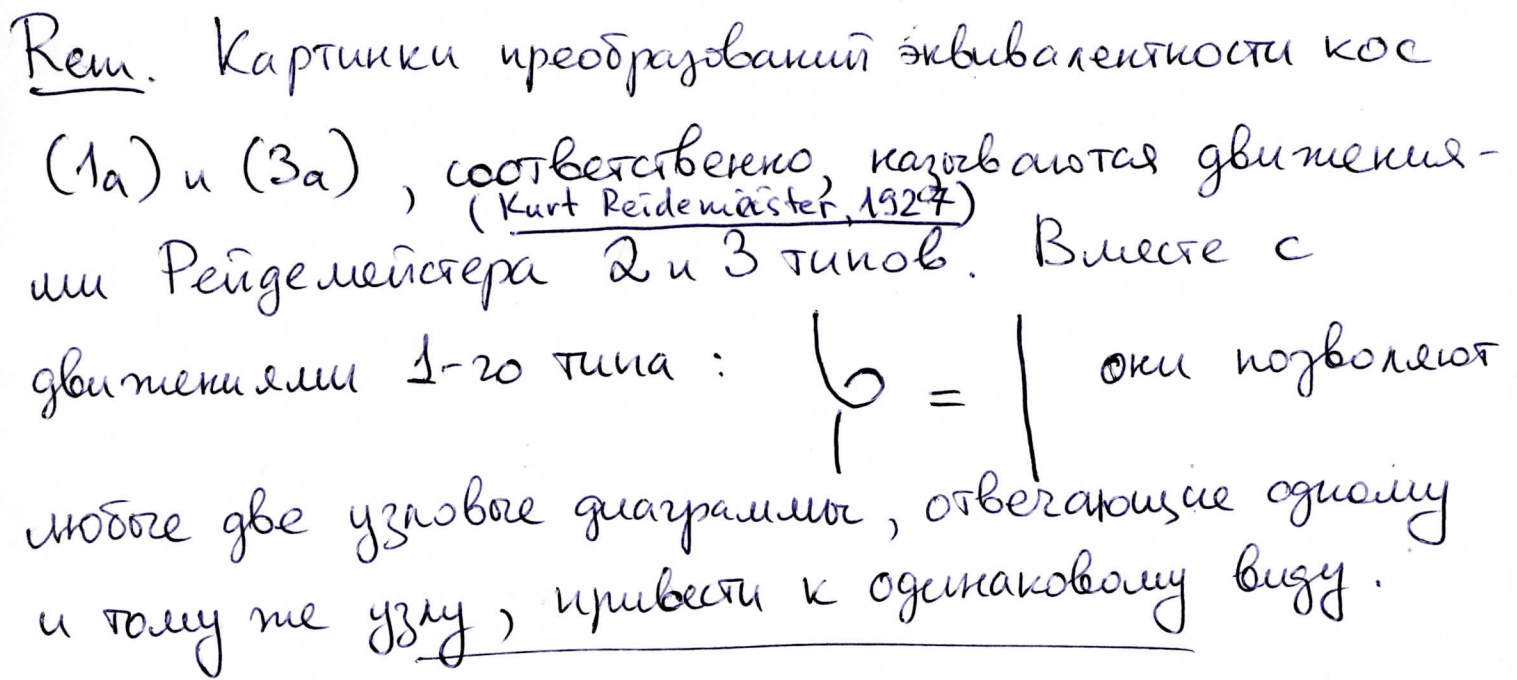 Rem. Картинки преобразований эквивалентности кос
(1а) и (3а), соответственно, называются движения-
(Kurt Reidemeister, 1927)
ми Рейдемейстера 2 и 3 типов. Вместе с
движениями 1-го типа : = они позволяют
любые две узловые диаграммы, отвечающие одному
и тому же узлу, привести к одинаковому виду.